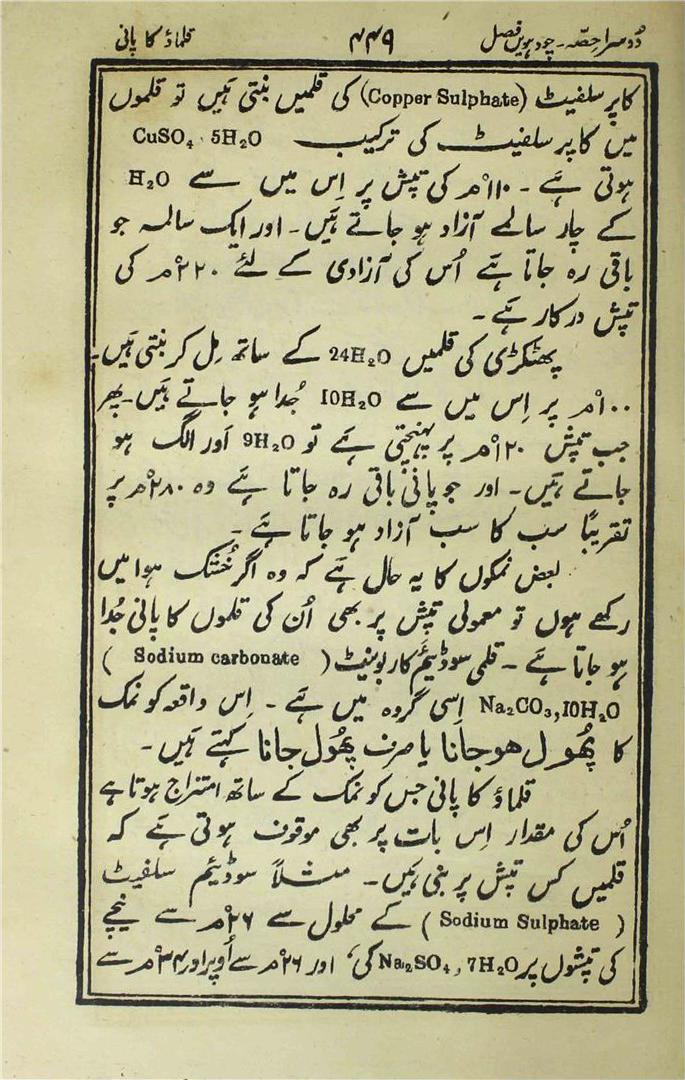 دُوسراحصّہ۔ چودہویں فصل ۴۴۹ قلماؤ کا پانی
کاپر سلفیٹ (Copper Sulphate) کی قلمیں بنتی ہیں تو قلموں
میں کاپر سلفیٹ کی ترکیب CuSO₄ · 5H₂O
ہوتی ہے ۔ ۱۱۰°م کی تپش پر اِس میں سے H₂O
کے چار سالمے آزاد ہو جاتے ہیں ۔ اور ایک سالمہ جو
باقی رہ جاتا ہے اُس کی آزادی کے لئے ۲۲۰°م کی
تپش درکار ہے ۔
پھٹکڑی کی قلمیں 24H₂O کے ساتھ مِل کر بنتی ہیں۔
۱۰۰°م پر اِس میں سے 10H₂O جُدا ہو جاتے ہیں۔ پھر
جب تپش ۱۲۰°م پر پہنچتی ہے تو 9H₂O اَور الگ ہو
جاتے ہیں۔ اور جو پانی باقی رہ جاتا ہے وہ ۲۸۰°م پر
تقریباً سب کا سب آزاد ہو جاتا ہے ۔
بعض نمکوں کا یہ حال ہے کہ وہ اگر خُشک ہوا میں
رکھے ہوں تو معمولی تپش پر بھی اُن کی قلموں کا پانی جُدا
ہو جاتا ہے ۔ قلمی سوڈیئم کاربونیٹ ( Sodium carbonate )
Na₂CO₃,10H₂O اِسی گروہ میں ہے ۔ اِس واقعہ کو نمک
کا پُھول ہوجانا یا صرف پُھول جانا کہتے ہیں ۔
قلماؤ کا پانی جس کو نمک کے ساتھ امتزاج ہوتا ہے
اُس کی مقدار اِس بات پر بھی موقوف ہوتی ہے کہ
قلمیں کس تپش پر بنی ہیں ۔ مثلاً سوڈیئم سلفیٹ
( Sodium Sulphate ) کے محلول سے ۲۶°م سے نیچے
کی تپشوں پر Na₂SO₄, 7H₂O کی، اور ۲۶°م سے اُوپر اور ۳۴°م سے